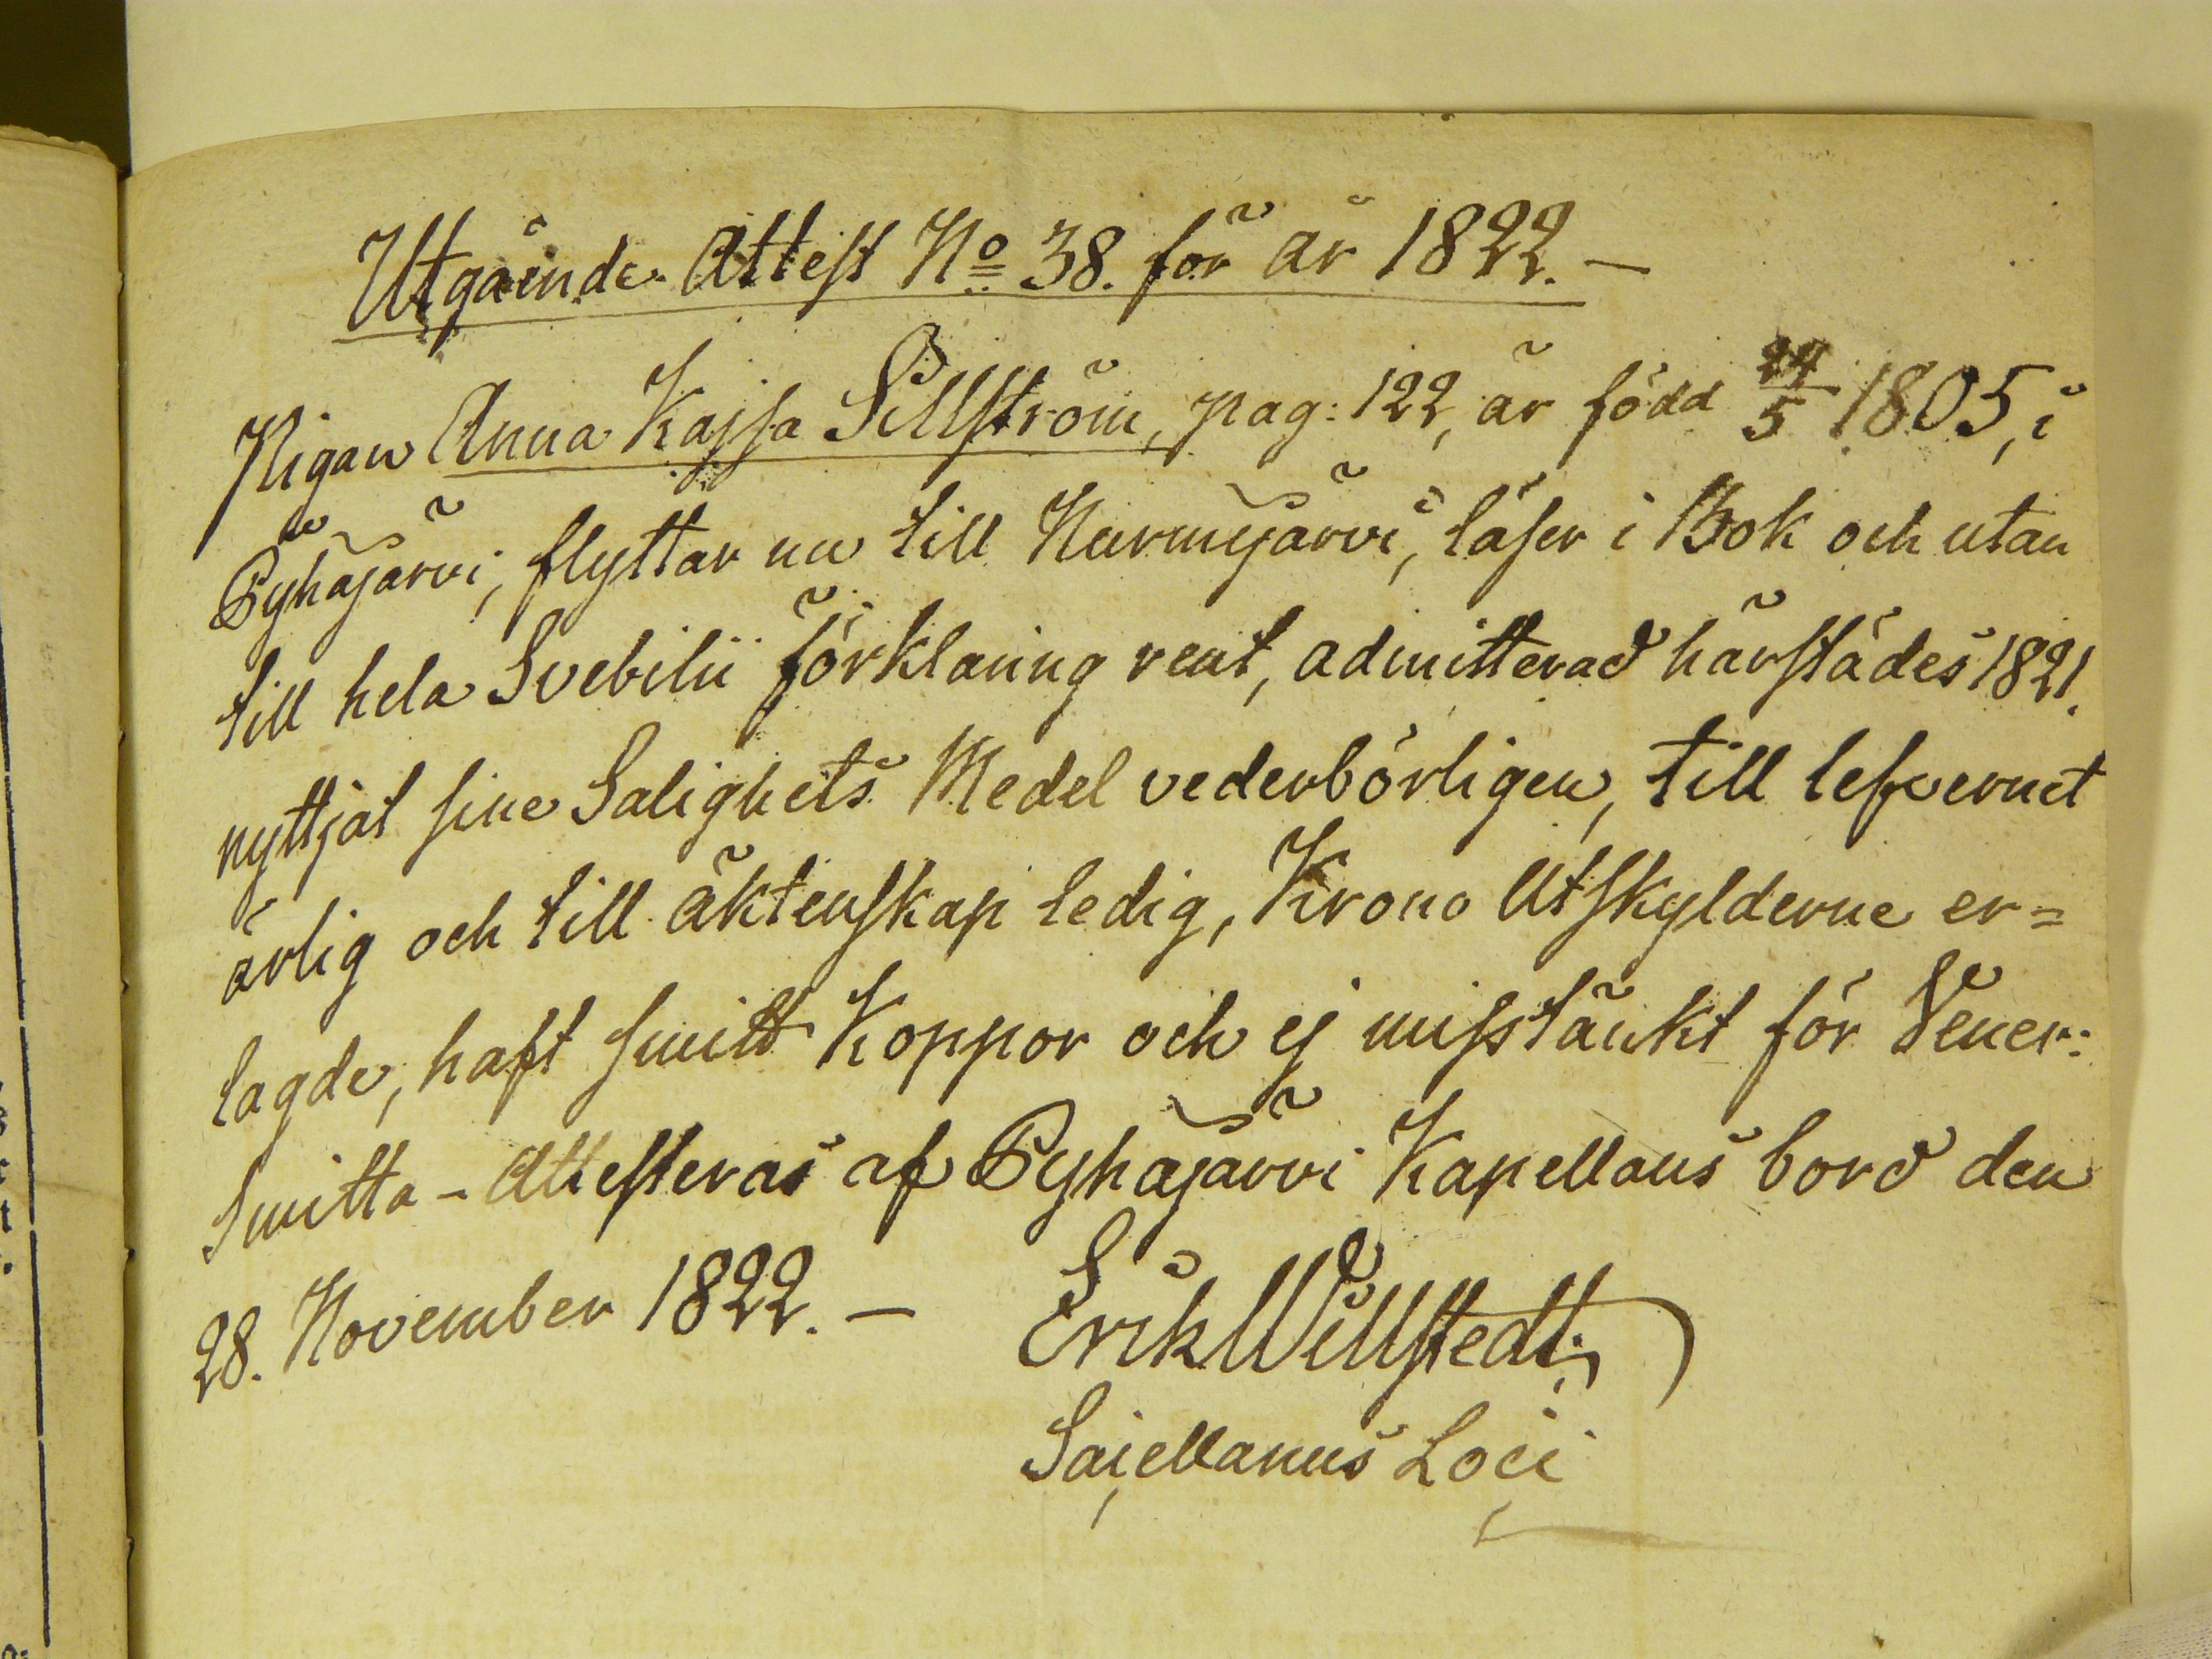 Utgående Attest No 38. för år 1822. —
Pigan Anna Kajsa Sillström, pag: 122, är född 24/5 1805, i
Pyhäjärvi, flyttar nu till Nurmijärvi, läser i Bok och utan
till hela Svebilii förklaring rent, admitterad härstädes 1821.
nyttjat sine Salighets Medel vederbörligen, till lefvernet
ärlig och till äktenskap ledig, Krono Utskylderne er=
lagde, haft smitt Koppor och ej misstänkt för Vener:
Smitta - Attesteras af Pyhäjärvi Kapellans bord den
28. November 1822. —
Erik Willstedt
Sacellanus Loci